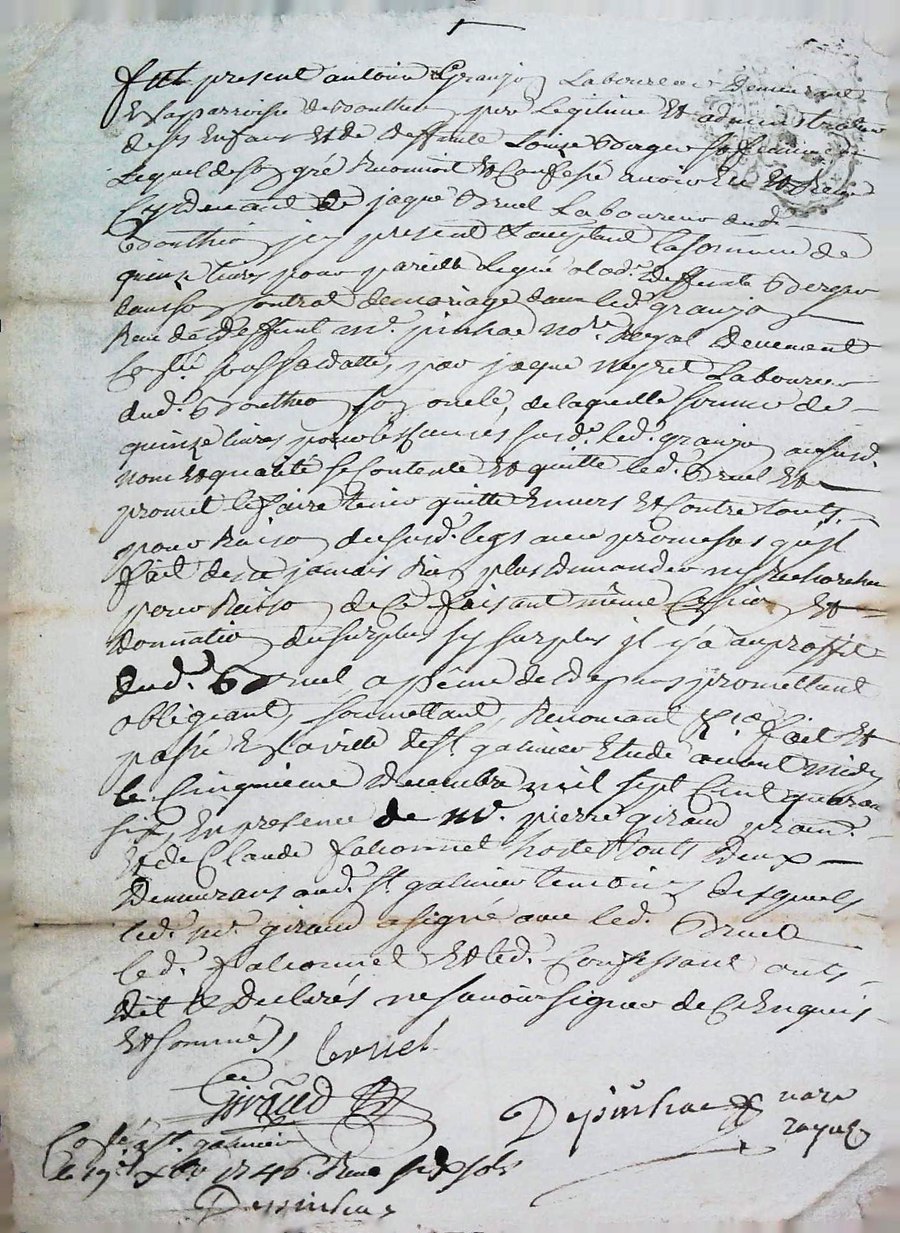 fut present antoine Granjon Laboureur demeurant
En la parroisse de Bouthéon pere Legitime Et administrateur
de ses Enfans Et de deffunte Louise Berger sa femme
Lequel de son gré Reconnoit Et Confesse avoir Eu Et Reçu
Cy devant de jaque Bruel Laboureur dud.
Bouthéon jcy present Et acceptant la somme de
quinze livres pour pareille Legué a lad. deffunte Berger
dans son Contrat de mariage avec led. granjon
Reçu dud. deffunt me. pinhac nore. Royal deuement
Contlé par jaque neyret Laboureur
dud. Bouthéon son oncle, de laquelle somme de
quinze livres pour les causes susd. led. granjon au susd.
nom Et qualité se Contente Et quitte led. Bruel Et
promet le faire tenir quitte Envers Et Contre touts,
pour Raison du susd. legs avec promesses qu'il
fait de ne jamais Rien plus demander ny Rechercher
pour Raison de Ce faisant même Cession Et
donnation du surplus sy surplus jl y a au proffit
dud. Bruel a peine de depens promettant
obligeant, soumettant, Renonçant &ca. fait Et
passé En la ville de st galmier Etude avant midy
le Cinquieme decembre mil sept Cent quaran
six, En presence de me. pierre giraud prat.
Et de Claude falconnet hoste touts deux
demeurans aud. st galmier temoins desquels
led. me. giraud a signé avec led. Bruel
led. falconnet Et led. Confessant onts
dit Et declarés ne savoir signer de Ce Enquis
Et sommés,
bruel
Giraud
Depinhac nore
royal
Contlé a st galmier
le 19e xbre 1746. Reçu six sols
Depinhac